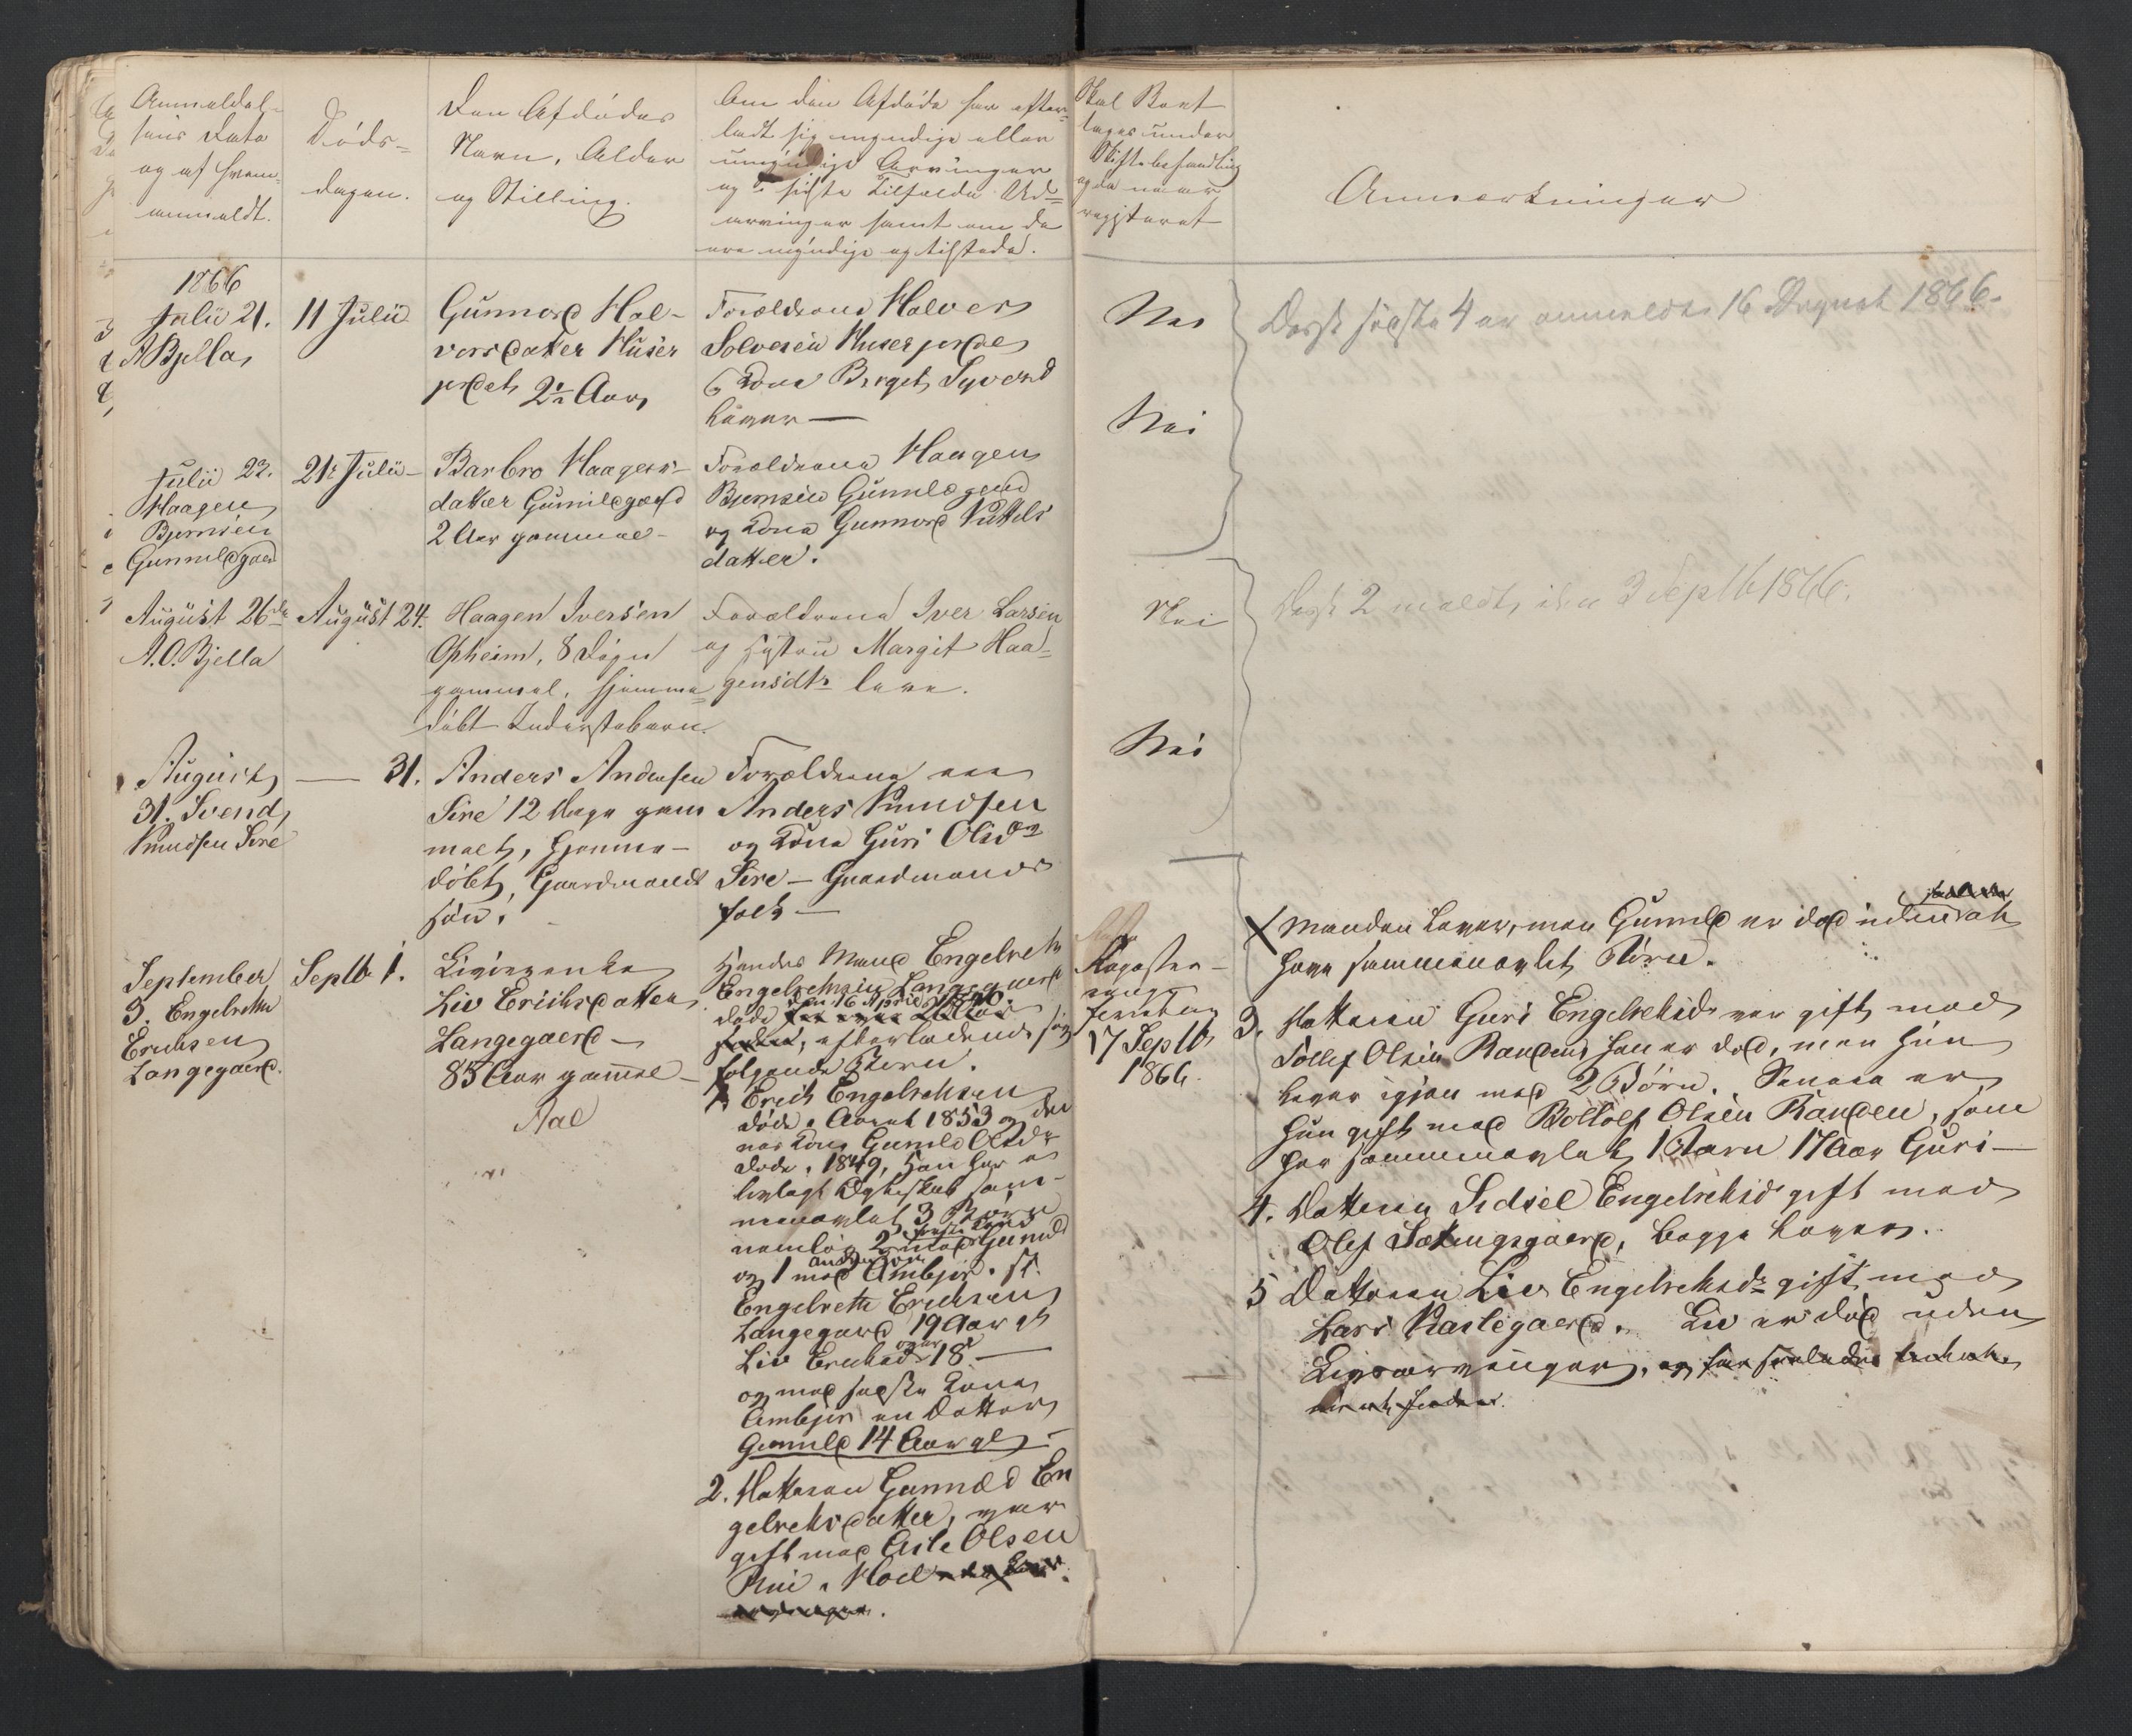 Anmeldel-
sens Dato
og af hvem
anmeldt.
Døds-
dagen.
Den Afdødes
Navn, Alder
og Stilling.
Om den Afdøde har efter-
ladt sig myndige eller
umyndige Arvinger
og i sidste Tilfælde Ud-
arvinger samt om de
ere myndige og tilstede.
Skal Boet
tages under
Skiftebehandling
og da naar
registeret
Anmærkninger
1866
Julii 21.
A Bjella,
11 Julii
Gunnord Hal-
vorsdatter Huser
jordet 2½ Aar,
Forældrene Halvor
Solvesen Huserjorde
& Kone Birget Syverd
Lever —
Nei
Disse første 4 er anmeldte 16 August 1866.
Nei
Julii 23.
Haagen
Bjørnsen
Gunnildgaard
21de Julii
Barbro Haagens-
datter Gunnildgaard
2 Aar gammel
Forældrene Haagen
Bjørnsen Gunnildgaard
og Kone Gunnord Kittels
datter.
August 26de
A. O. Bjella
August 24.
Haagen Iversen
Opheim, 8 Dage
gammel, hjemme-
døbt Inderstebarn.
Forældrene Iver Larsen
og Hustru Margit Haa-
gensdtr leve.
Nei
Disse 2 meldt, den 3 Septb 1866.
August
31. Svend
Knudsen Sire
— 31.
Anders Andersen
Sire 12 Dage gam
mel, hjemme-
døbt, Gaardmands
søn.
Forældrene ere
Anders Knudsen
og Kone Guri Olsdr
Sire — Gaardmands
folk —
Nei
September
3. Engelreth
Erichsen
Langegaard.
Septb 1.
Liv Erichsdatter
Langegaard —
85 Aar gammel —
Aal
Hendes Mand Engelreth
Engelrethsen Langegaard
døde den 16 April 1840.
efterladende sig
følgende Børn.
1. Erich Engelrethsen
døde i August 1853 og den
Kone Gunild Olsdr
døde i 1849, Han har i
lovligt Ægteskab sam-
menavlet 3 Børn
nemlig 2 med første Kone Gunild
og 1 med anden Kone Ambjør.
Engelreth Erichsen
Langegaard 19 Aar gl
Liv Erichsdr 18 —
og med sidste Kone
Ambjør en Datter
Gunild 14 Aar gl —
2. Datteren Gunnild En
gelrethsdatter, var
gift med Asle Olsen
i Hoel
17 Septb
1866.
X Manden Lever, men Gunnild er død uden at
have sammenavlet Børn.
3. Datteren Guri Engelrethsdr var gift med
Tollef Olsen Rauden han er død, men hun
lever igjen med 2 Børn. Senere er
hun gift med Bottolf Olsen Rauden, som
har sammenavlet 1 Barn 17 Aar Guri —
4. Datteren Sidsel Engelrethsdr gift med
Olef Sætingsgaard, begge Lever.
5 Datteren Liv Engelrethsdr gift med
Lars Karlegaard. Liv er død uden
Livsarvinger,